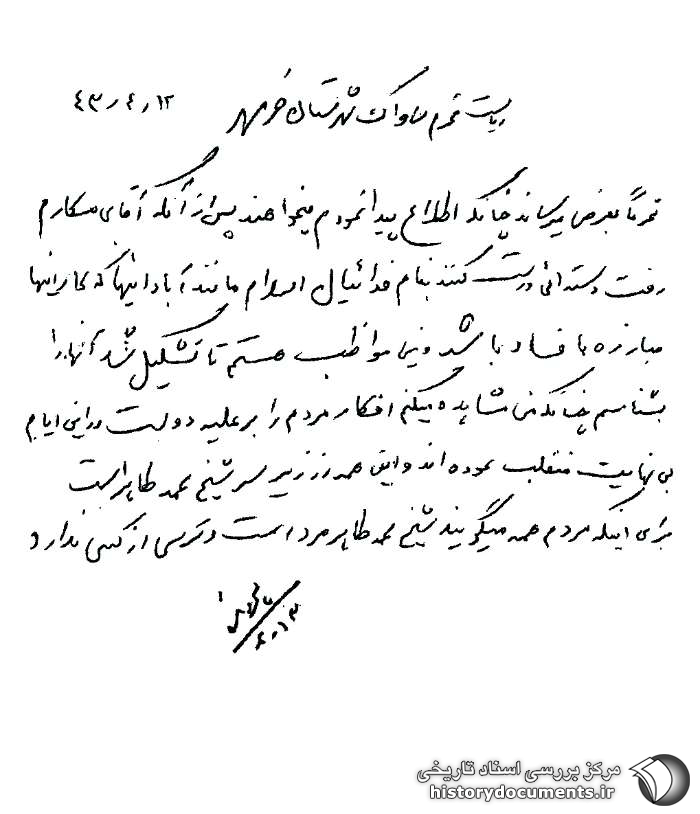 ریاست محترم ساواک شهرستان خرمشهر ۴۳٫۴٫۱۲
محترماً بعرض میرساند چنانکه اطلاع پیدا نمودم میخواهند پس از آنکه آقای مکارم
رفت دسته‌ائی درست کنند بنام فدائیان اسلام مانند آبادانیها که کار اینها
مبارزه با فساد باشد ومن مواظب هستم تا تشکیل شد آنها را
بشناسم چنانکه من مشاهده میکنم افکار مردم را بر علیه دولت در این ایام
بی نهایت منقلب نموده‌اند و این همه از زیر سر شیخ محمد طاهر است
برای اینکه مردم همه میگویند شیخ محمد طاهر مرد است و ترسی از کسی ندارد
مرکز بررسی اسناد تاریخی
historydocuments.ir